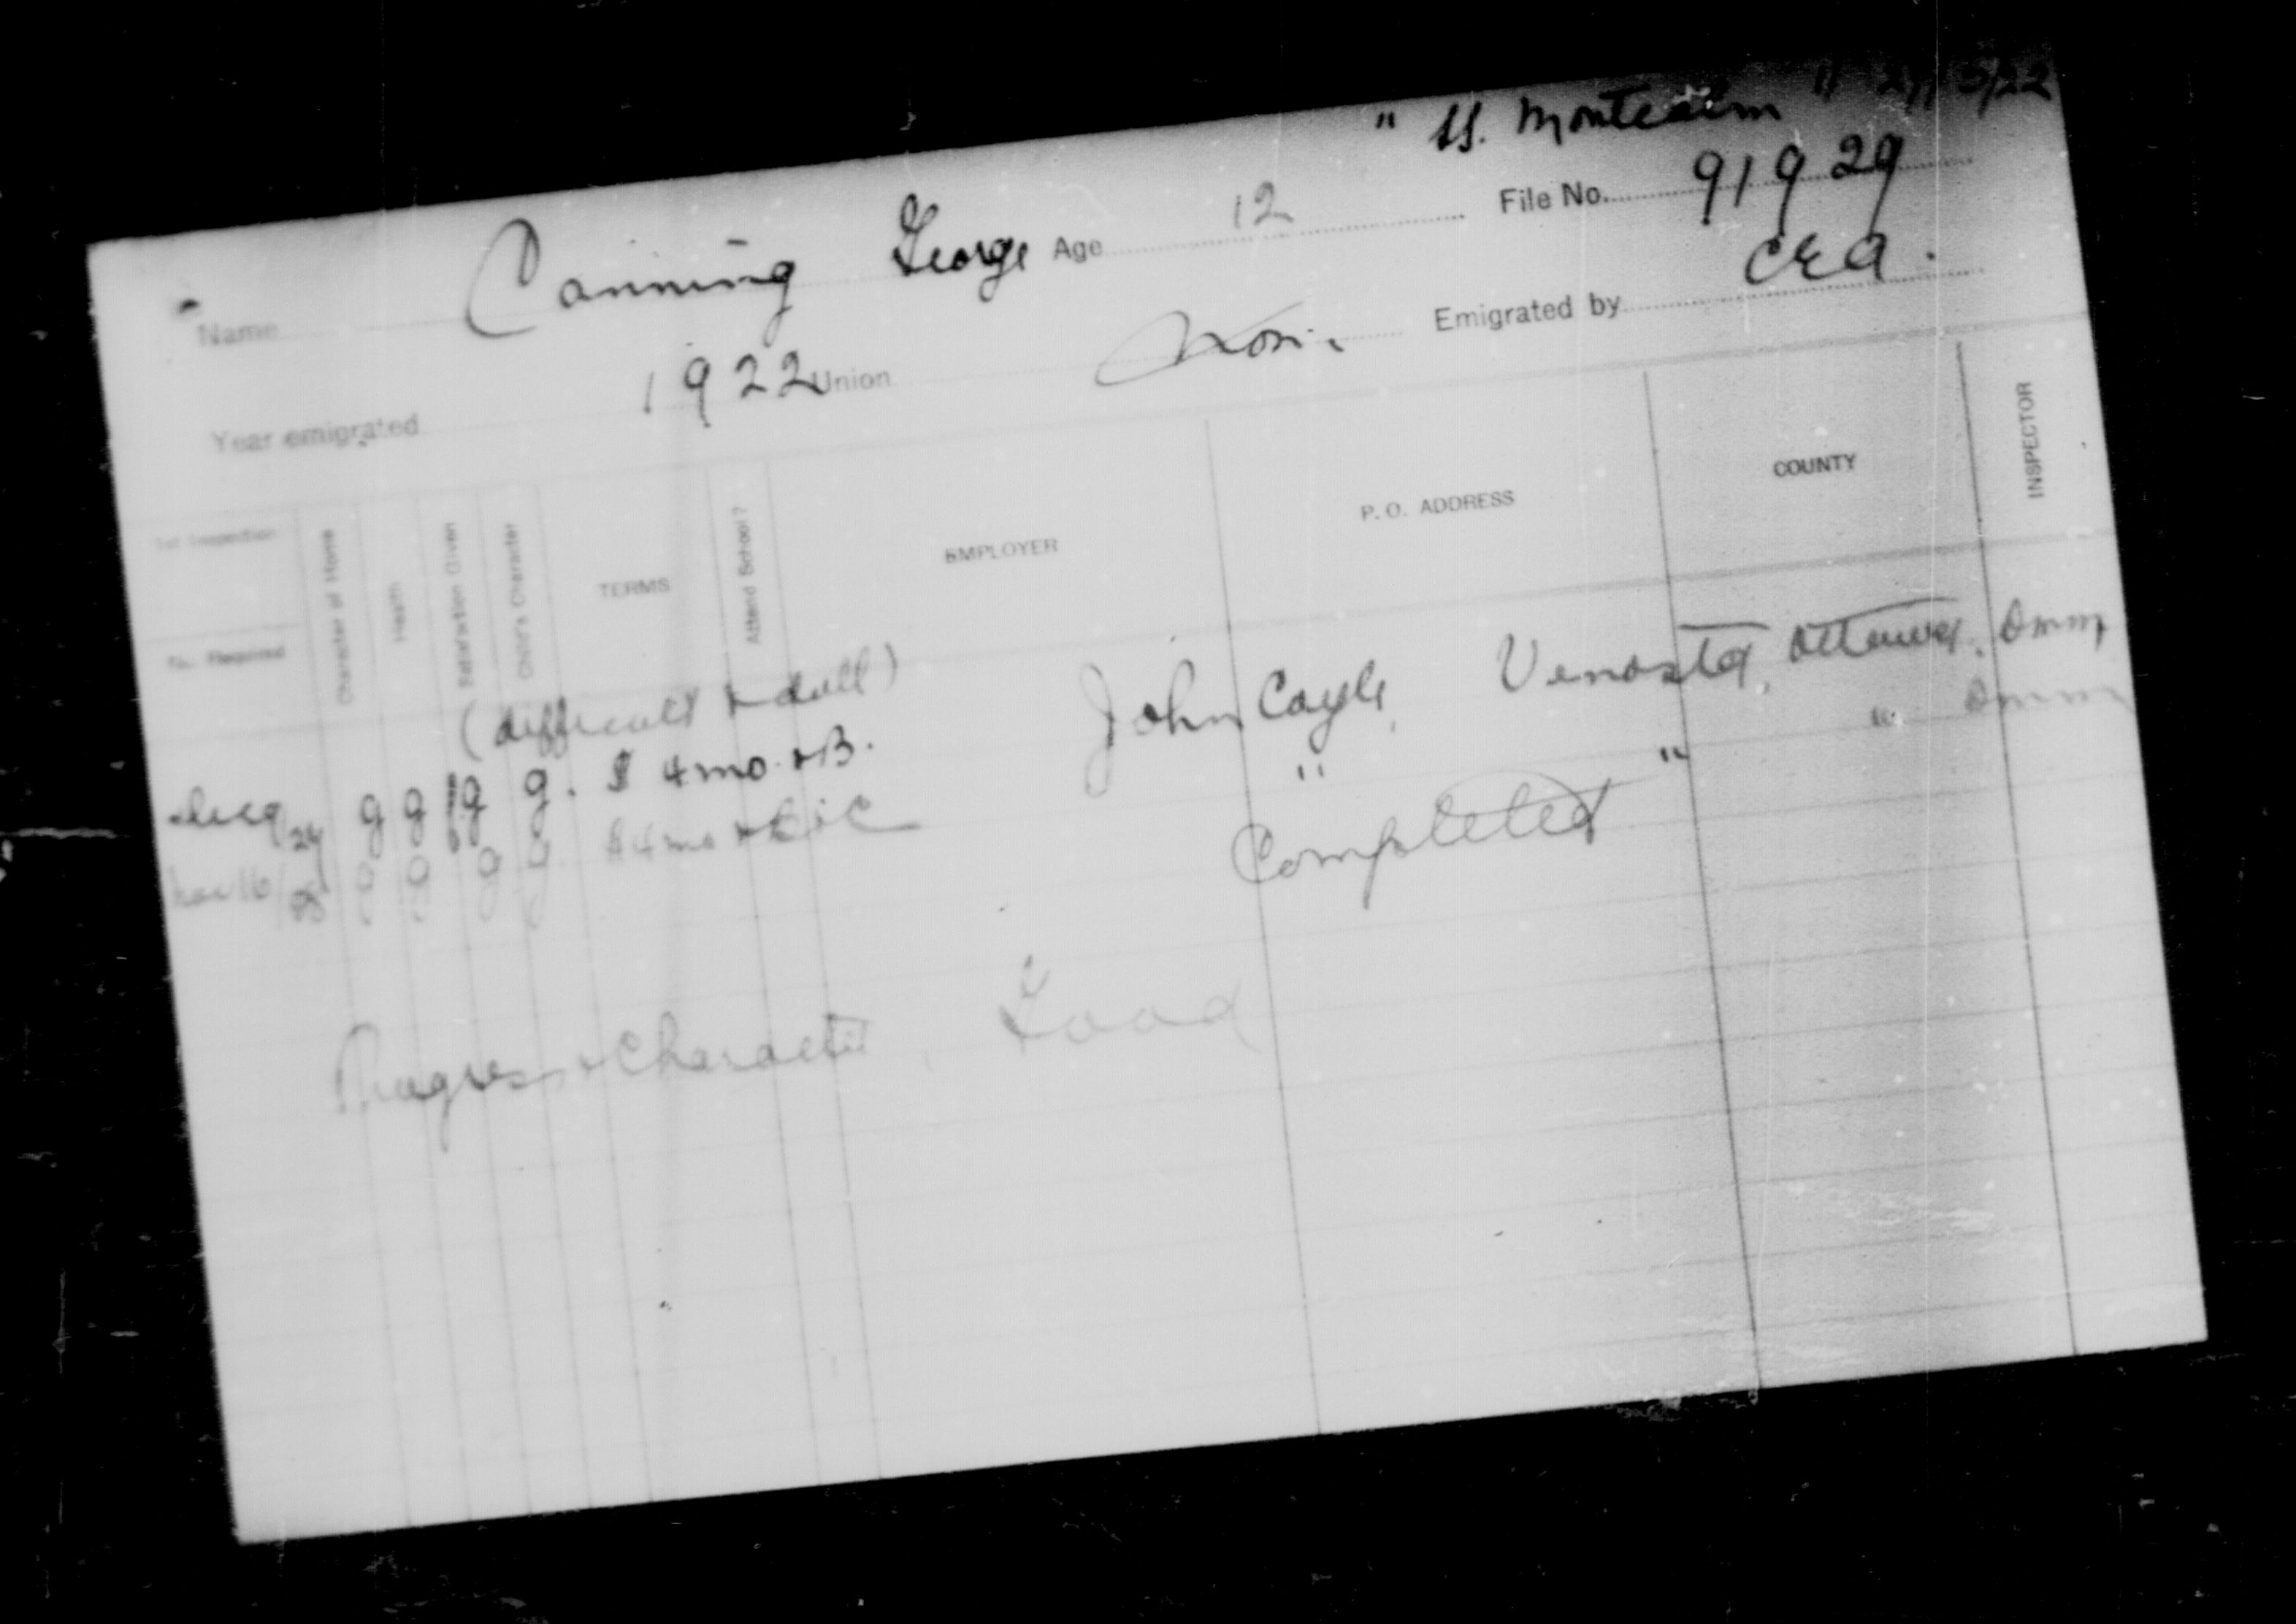 " SS. Montcalm "
Name Canning George Age 12 File No. 91929
Year emigrated 1922 Union Non. Emigrated by CEA.
1st Inspection
No. Required
Character of Home
Health
Satisfaction Given
Child's Character
TERMS
Attend School?
EMPLOYER
P. O. ADDRESS
COUNTY
INSPECTOR
(difficult & dull)
24 g g g g. $ 4 mo. & B. John Cayle, Venosta, Ottawa. Dmm
Nov 16 g g g g $ 4 mo & B & C " " " Dmm
Completed
Progress & Character, Good